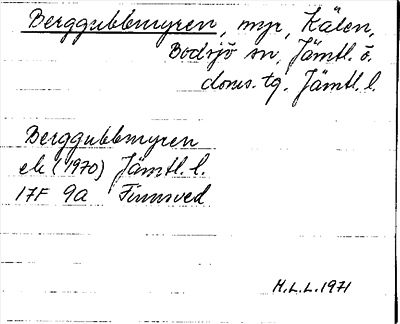 Berggubbmyren, myr, Kälen,
Bodsjö sn, Jämtl. ö.
doms. tg. Jämtl. l.
Berggubbmyren
ek (1970) Jämtl. l.
17F 9a Finnsved
H.L.L. 1971